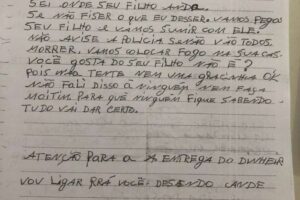 SEI ONDE SEU FILHO ANDA.
SE NÃO FISER O QUE EU DESSER. VAMOS PEGOS
SEU FILHO E VAMOS SUMIR COM ELE.
NÃO AVISE A POLICIA SENÃO VÃO TODOS
MORRER. VAMOS COLOCAR FOGO NA SUA CAS
VOCÊ GOSTA DO SEU FILHO NÃO E?
POIS NÃO TENTE NEM UMA GRACINHA OK
NÃO FALI DISSO A NINGUÉM NEM FAÇA
MOITIM PARA QUE NINGUÉM FIQUE SABENDO
TUDO VAI DAR CERTO.
ATENÇÃO PARA A ENTREGA DO DINHEIR
VOU LIGAR PRÁ VOCÊ. DESENDO ANDE